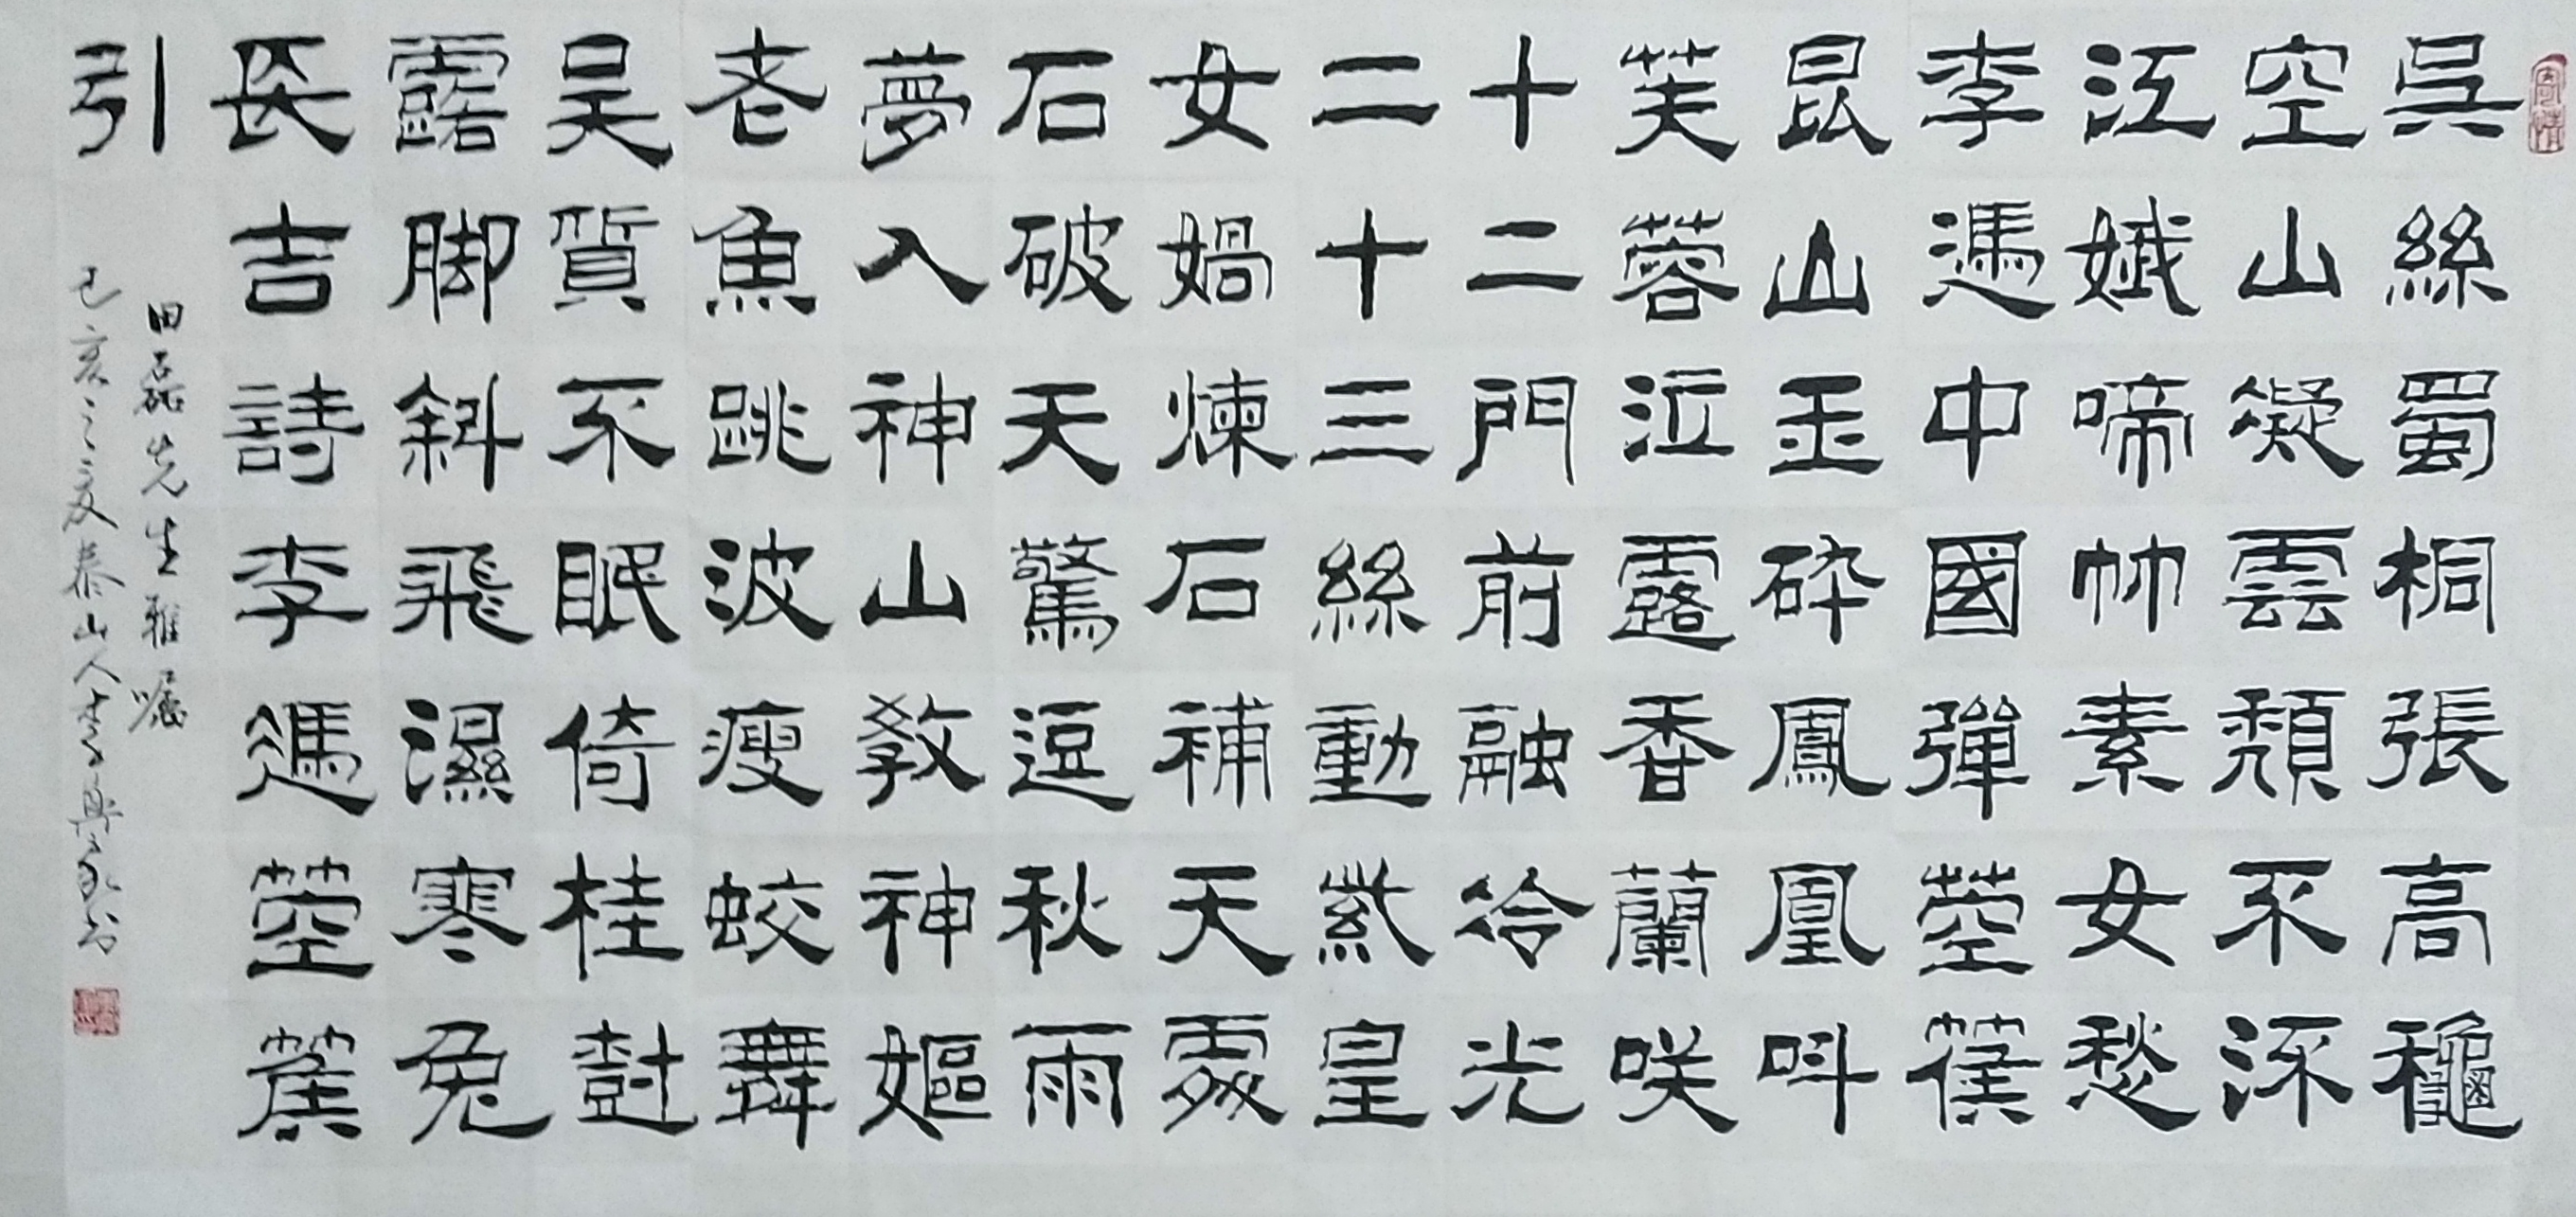 吳絲蜀桐張高龝
空山凝雲頹不流
江娥啼竹素女愁
李憑中國彈箜篌
昆山玉碎鳳凰叫
芙蓉泣露香蘭咲
十二門前融冷光
二十三絲動紫皇
女媧煉石補天處
石破天驚逗秋雨
夢入神山教神嫗
老魚跳波瘦蛟舞
吴質不眠倚桂樹
露脚斜飛濕寒兔
長吉詩李憑箜篌
引
田磊先生雅嘱
己亥之夏泰山人李興
寄情